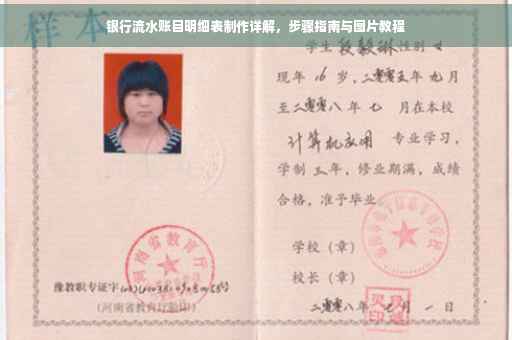 银行流水账目明细表制作详解，步骤指南与图片教程
样本
学生 段毅琳 性别
现年 16 岁，二零零五年 九月
至二零零八年 七 月在本校
计算机应用 专业学习，
学制 三 年，修业期满，成绩
合格，准予毕业。
学校（章）
校长（章）
二零零八年 月 一 日
河南省教育厅
豫教职专证字
（河南省教育厅验印）